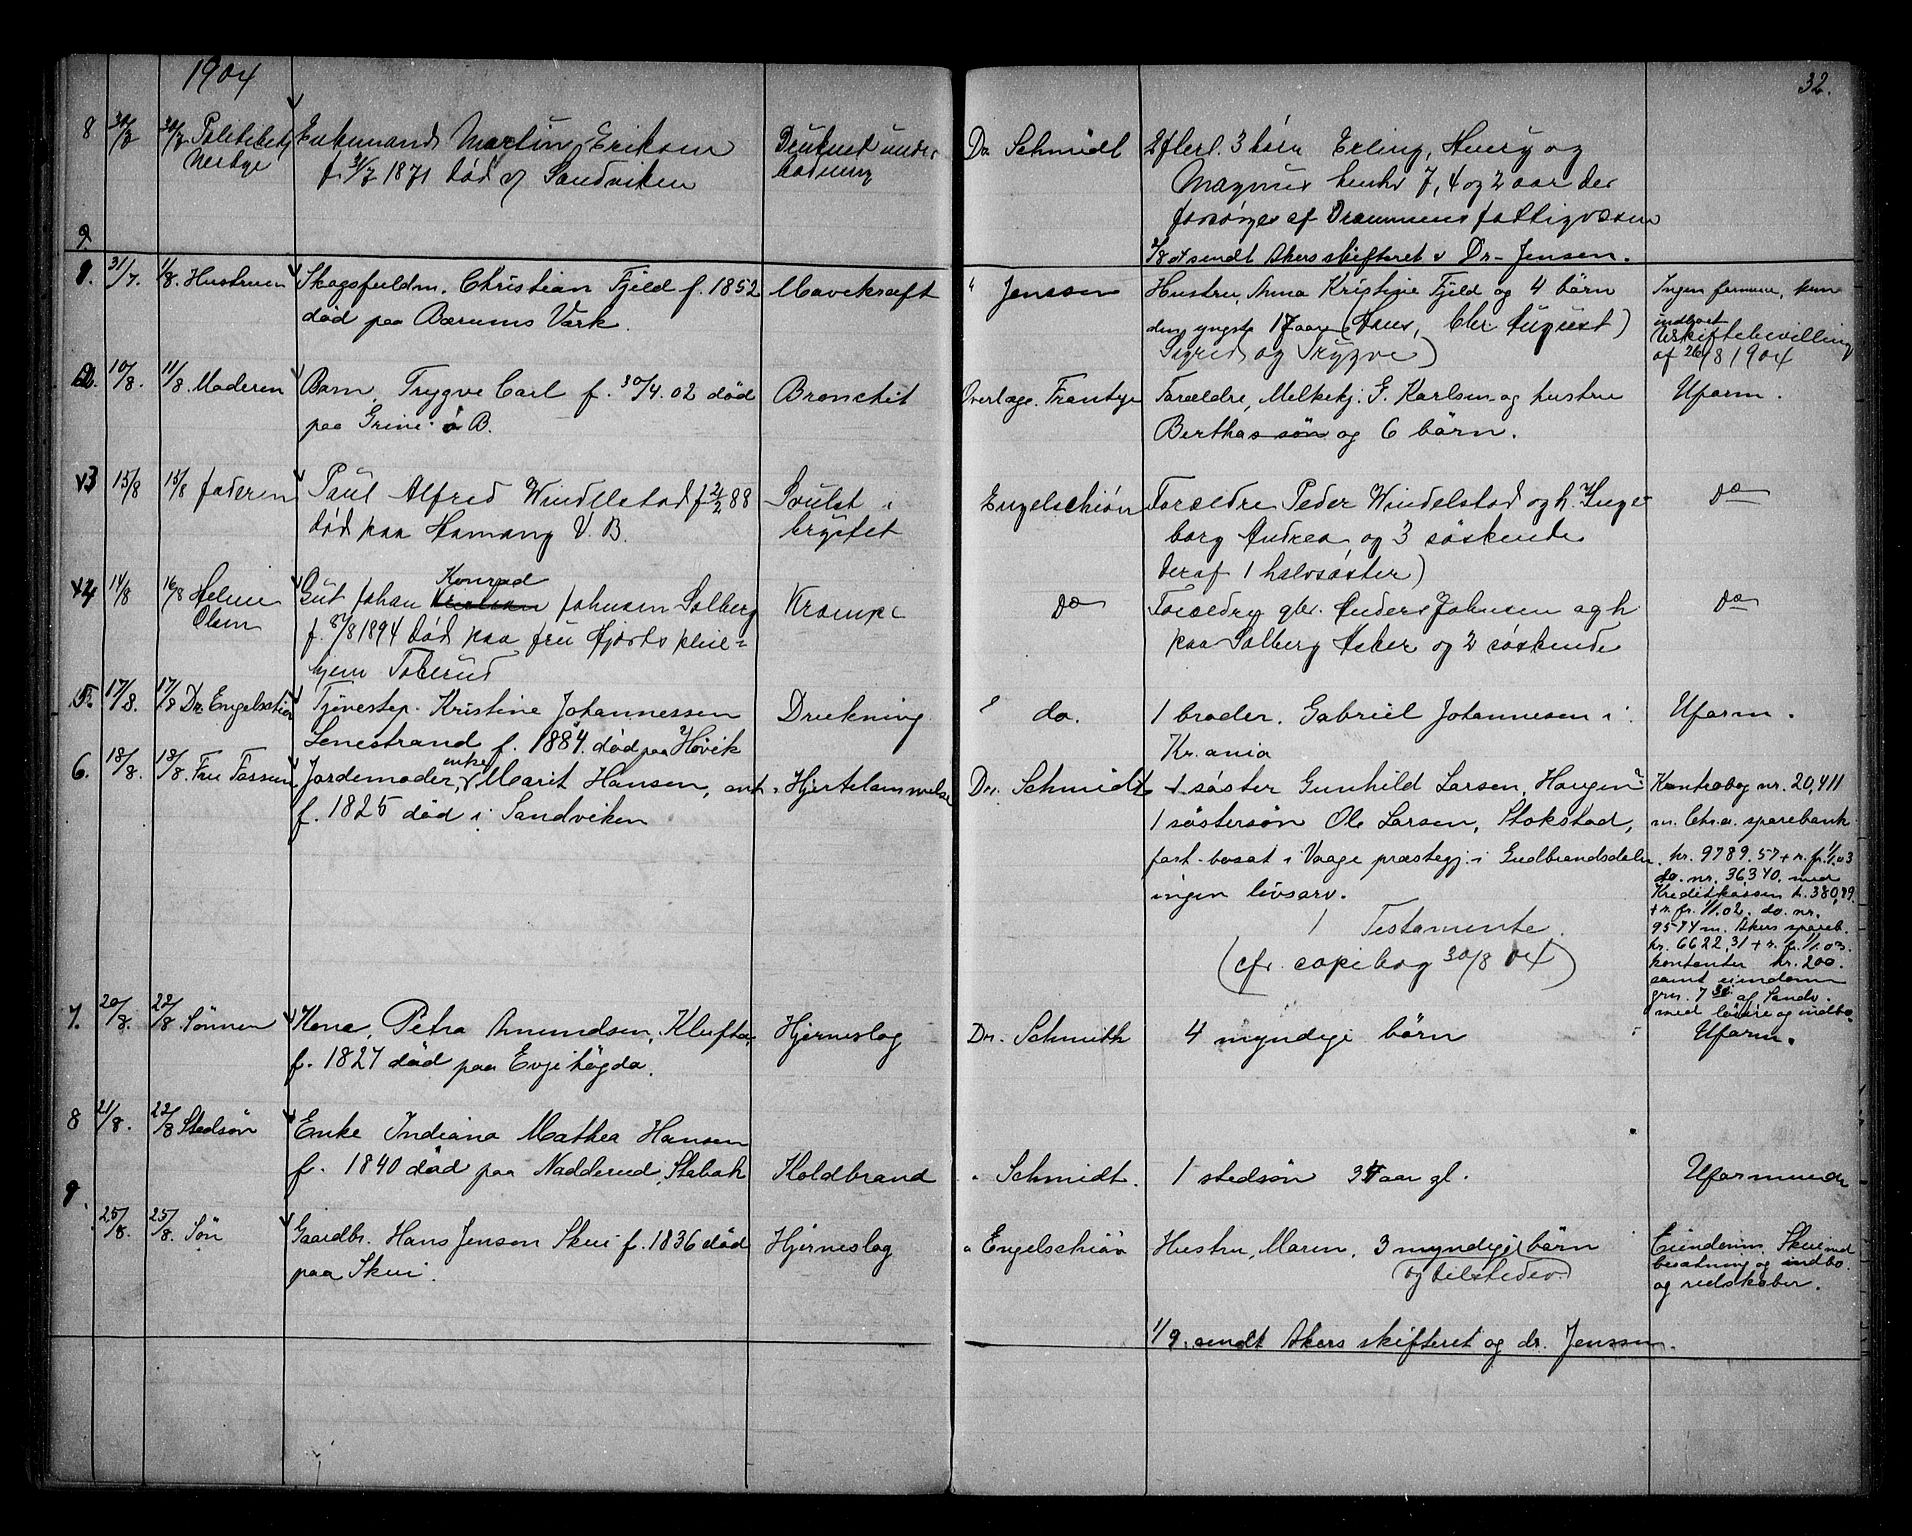 1904
32.
8 30/7 30/7 Politibetj. Enkemand Martin Eriksen Druknet under Dr Schmidt Efterl. 3 børn Erling, Henry og
f. 3/7 1871 død i Sandviken badning Magnus henhv 7, 4 og 2 aar der
forsørges af Drammens fattigvæsen
9. 2/8 04 sendt Akers skifteret & Dr. Jensen.
1. 31/7. 1/8. Hustruen Skogsfuldm. Christian Fjeld f. 1852 Mavekræft " Jenssen Hustru, Anna Kristine Fjeld og 4 börn Ingen formue, kun
död paa Bærums Værk. den yngste 17 aar (Hans, Chr August indbo
Sigrid og Trygve) Uskiftebevilling
af 26/8 1904
2. 10/8. 11/8. Moderen Barn, Trygve Carl f. 30/4. 02 död Bronchit Overlæge Frantze Forældre, Melkekj. G. Karlsen og hustru Uform.
paa Grini ö B. Berthas søn og 6 börn.
3 15/8 15/8 faderen Paul Alfred Windelstad f 2/2 88 Svulst i Engelschiøn Forældre Peder Windelstad og h. Inge- do
død paa Hamang V. B. brystet borg Andrea og 3 søskende
deraf 1 halvsøster)
4 14/8 16/8 Helene Gut Johan Konrad Johnsen Solberg Krampe do Forældre gbr. Anders Johnsen og h. do
Olsen f. 8/8 1894 død paa fru Hjorts pleie= paa Solberg Asker og 2 søskende
hjem Tokerud
5. 17/8. 17/8 Dr. Engelschiøn Tjenestep. Kristine Johannessen Drukning " do. 1 broder. Gabriel Johannesen i Uform.
Lenestrand f. 1884. död paa Hövik Kr.ania
6. 18/8. 18/8. Fru Fossum Jordemoder, enke Marit Hansen, ant. Hjertelammelse Dr. Schmidt 1 søster Gunhild Larsen, Haugen Kontrabog nr. 20,411
f. 1825 död i Sandviken 1 söstersön Ole Larsen, Stokstad, m. Chr.a. sparebank
fast bosat i Vaage præstegj. i Gudbrandsdalen kr. 9789.57 + r. fr. 1/1.03
do. nr. 36340. med
ingen livsarv. Kreditkassen k. 380,89
1 Testamente. + r. fr. 1/1.02. do. nr.
9574 m. Akers spareb.
(cfr. copibog 30/8 04) kr. 6622,31 + r. f. 1/1.03.
kontanter kr. 200.
samt eiendom
grn. 7 af Sandv.
med löøre og indbo
7. 20/8. 22/8 Sønnen Kone, Petra Amundsen, Klufta, Hjerneslag Dr. Schmith 4 myndige börn Uform.
f. 1827 död paa Evjehøgda.
8 21/8. 22/8 Stedsøn Enke Indiana Mathea Hansen
f. 1840 död paa Nadderud, Stabæk Koldbrand " Schmidt. 1 stedsön 34 aar gl. Uformuende
9 25/8. 25/8. Søn Gaardbr. Hans Jensen Skui f. 1836 död Hjerneslag " Engelschiøn Hustru, Maren, 3 myndige börn Eiendom Skui med
paa Skui. og tilsteder. besætning og indbo
og redskaber.
1/9. sendt Akers skifteret og dr. Jenssen.